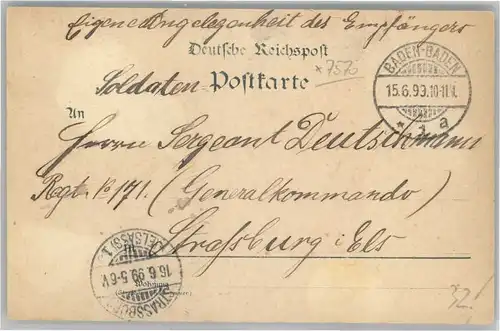 Eigene Angelegenheit des Empfängers
Deutsche Reichspost
*7576
Soldaten-Postkarte
BADEN-BADEN
15.6.99.10-11V.
* 1 a
An
Herrn Sergeant Deutschmann
Regt. No 171. (Generalkommando)
Strassburg i Els
STRASSBURG
(ELSASS) 1.
16.6.99.5-6V.
Wohnung